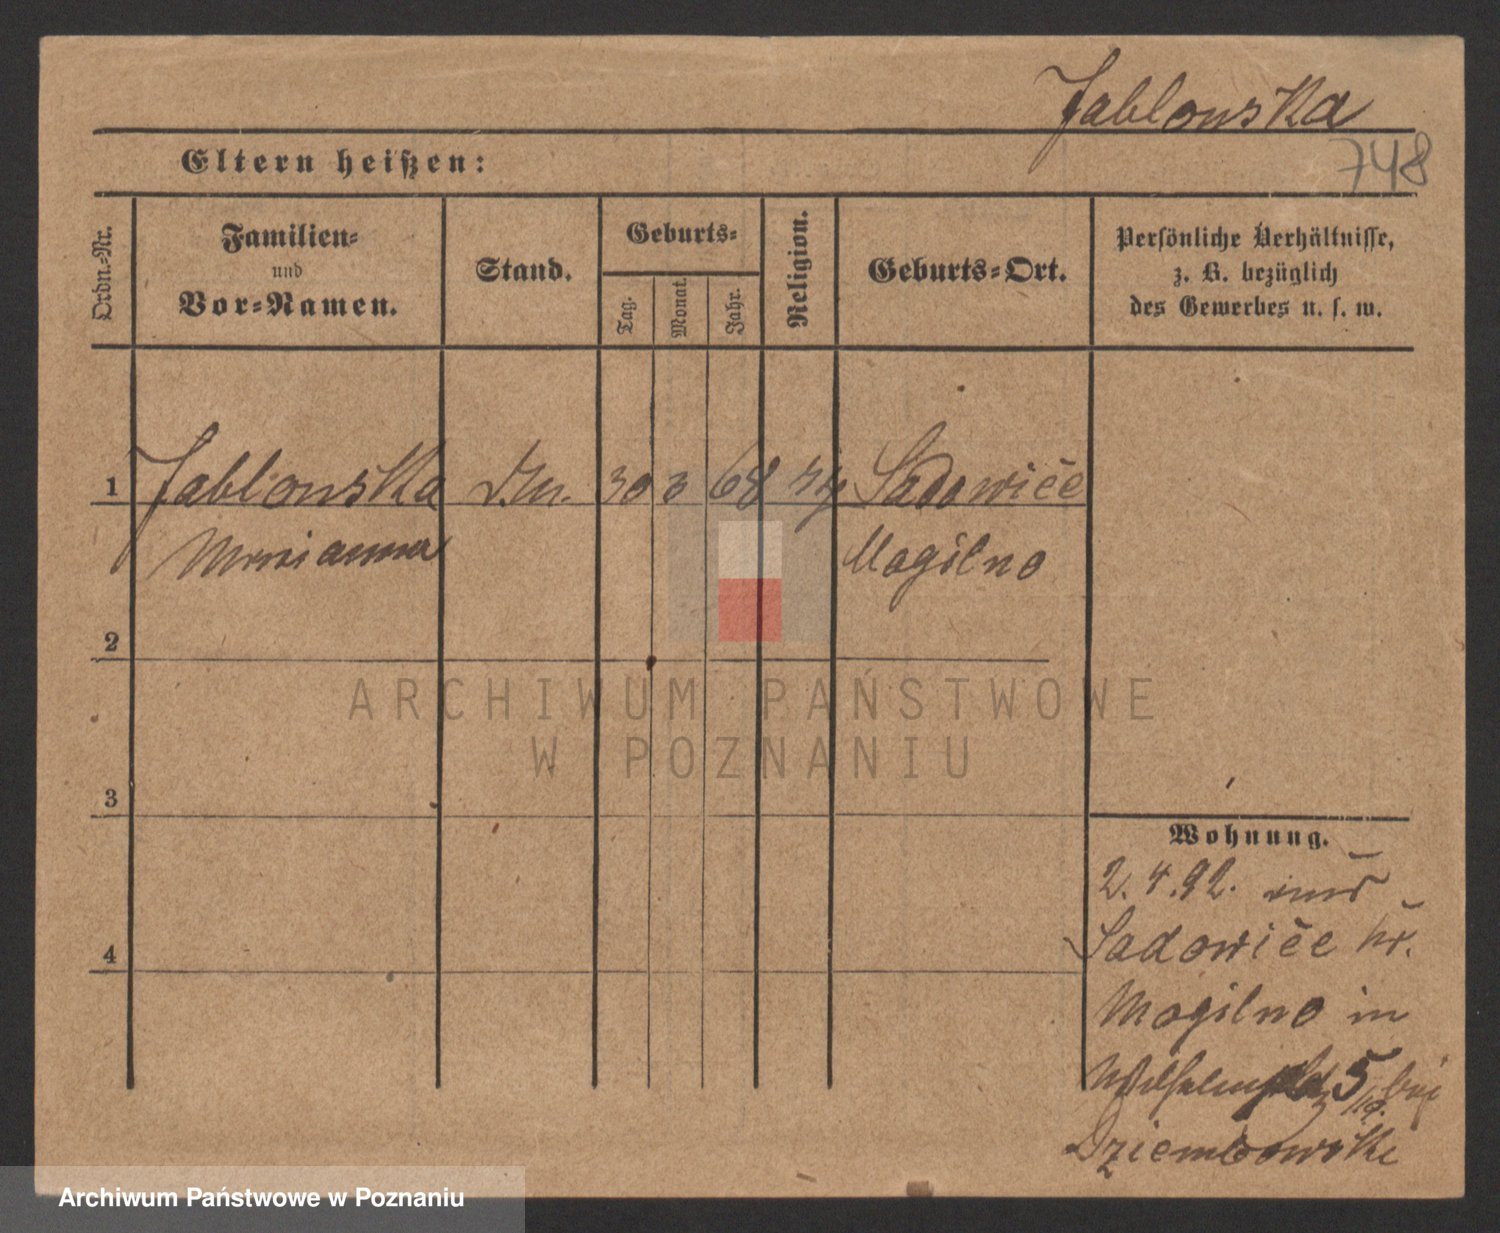 Jablonska
748
Eltern heißen:
Ordn.-Nr.
Familien-
und
Vor-Namen.
Stand.
Geburts-
Tag.
Monat.
Jahr.
Religion.
Geburts-Ort.
Persönliche Verhältnisse,
z. B. bezüglich
des Gewerbes u. s. w.
1 Jablonska 30 3 68 Sadowiče
Marianna Mogilno
2
3
4
Wohnung.
2. 4. 92. aus
Sadowiče Kr.
Mogilno in
Wilhelmsplatz 5 bei
Dziembowski
ARCHIWUM PAŃSTWOWE
W POZNANIU
Archiwum Państwowe w Poznaniu